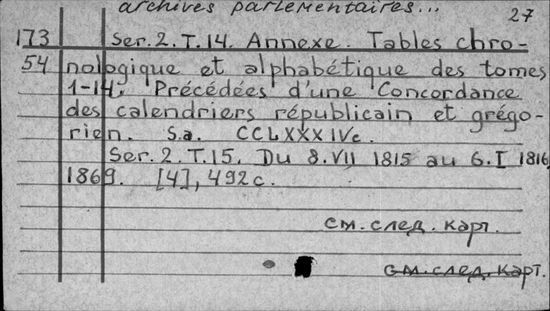 archives parlementaires... 27
173 Ser. 2. T. 14. Annexe. Tables chro-
54 nologique et alphabétique des tomes
1-14. Précédées d'une Concordance
des calendriers républicain et grégo-
rien. S.a. CCLXXXIV c.
Ser. 2. T. 15. Du 8. VII 1815 au 6. I 1816
1869. [4], 492 c.
см. след. карт.
см. след. карт.